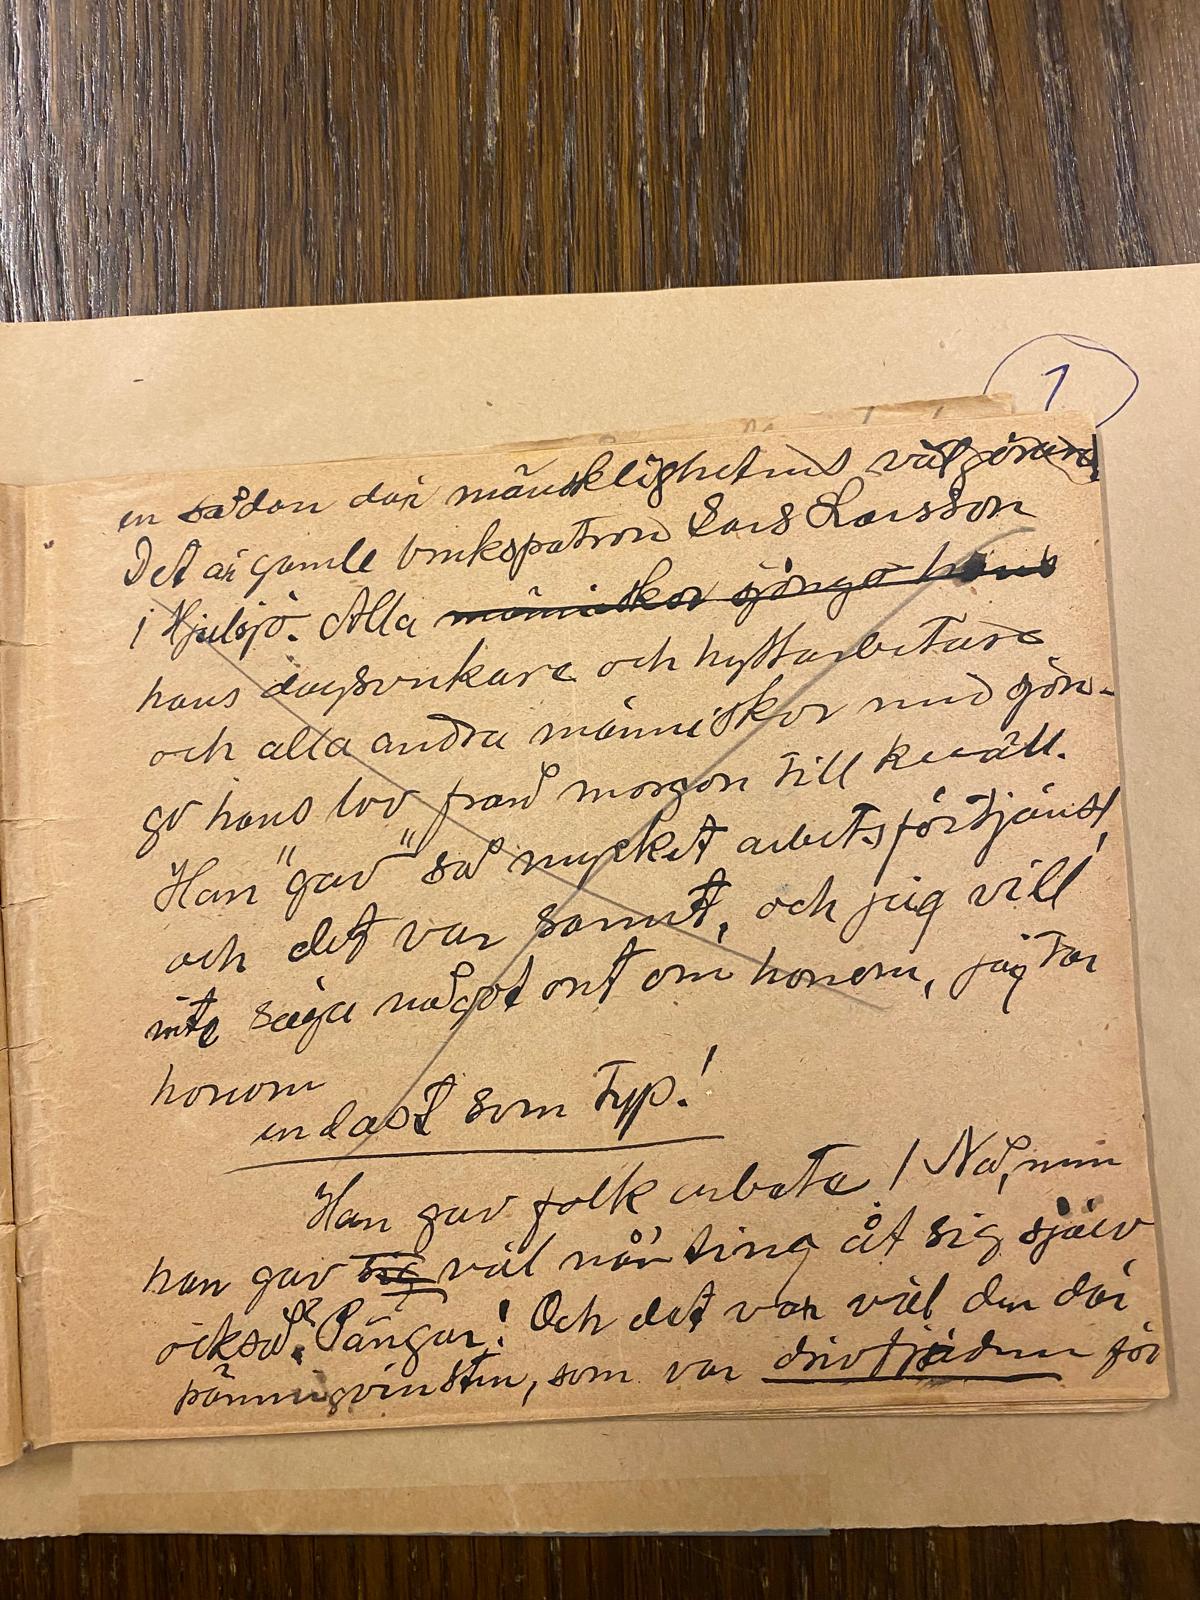 1
en sådan där mänsklighetens välgörare.
Det är gamle brukspatron Lars Larsson
i Hjulsjö. Alla människor sjöngo hans
hans dagsverkare och hyttarbetare
och alla andra människor med sjön-
go hans lov från morgon till kväll.
Han "gav" så mycket arbetsförtjänst,
och det var sannt, och jag vill
inte säga något ont om honom, jag tar
honom
endast som typ!
Han gav folk arbete! Nå, men
han gav sig väl någonting åt sig själv
också? Pängar! Och det var väl den där
pänningvinsten, som var drivfjädern för